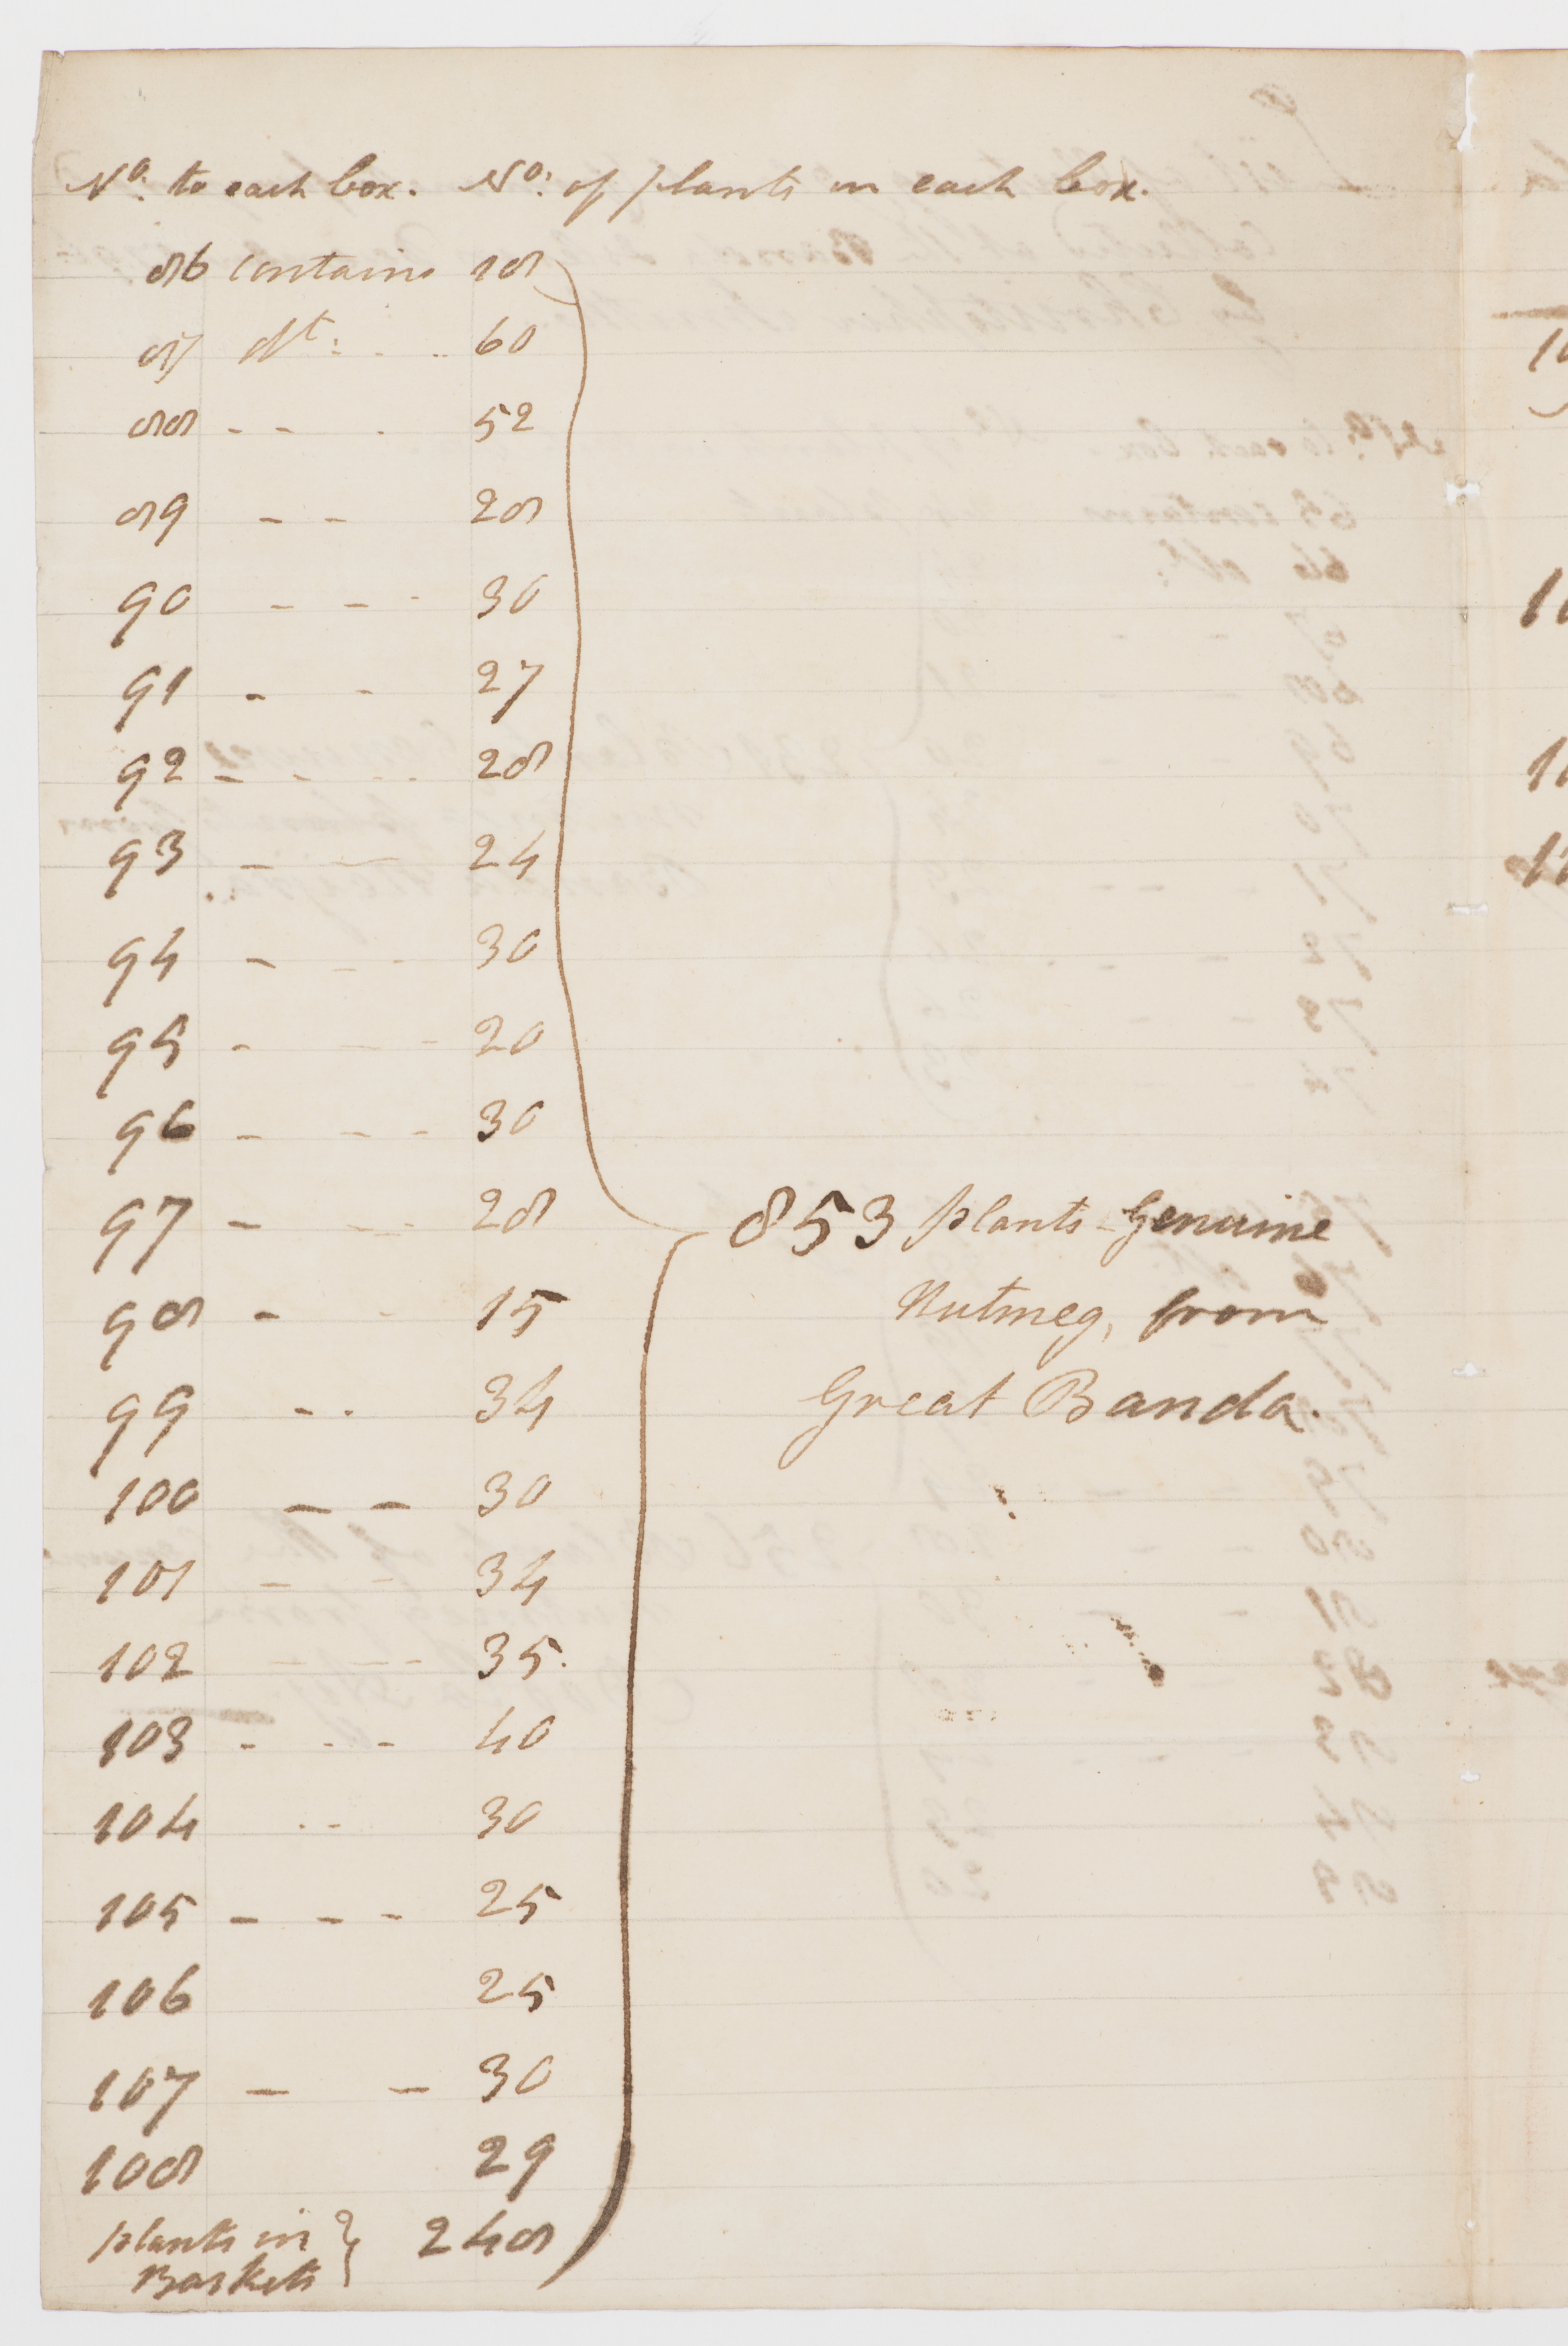 No. to each box. No: of plants in each box.
86 contains 18
87 dt: - . .. 60
88 - - . 52
89 - - 28
90 - - - 30
91 - - 27
92 - - - - 28
93 - - 24
94 - - - 30
95 - - - 20
96 - - - - 30
97 - - - 28
98 - - 15
99 - . 34
100 - - 30
101 - - 34
102 - - - - 35.
103 - - - 40
104 . - 30
105 - - - 25
106 25
107 - - 30
108 29
plants in } 248
Baskets
853 plants - Genuine
Nutmeg, from
Great Banda.